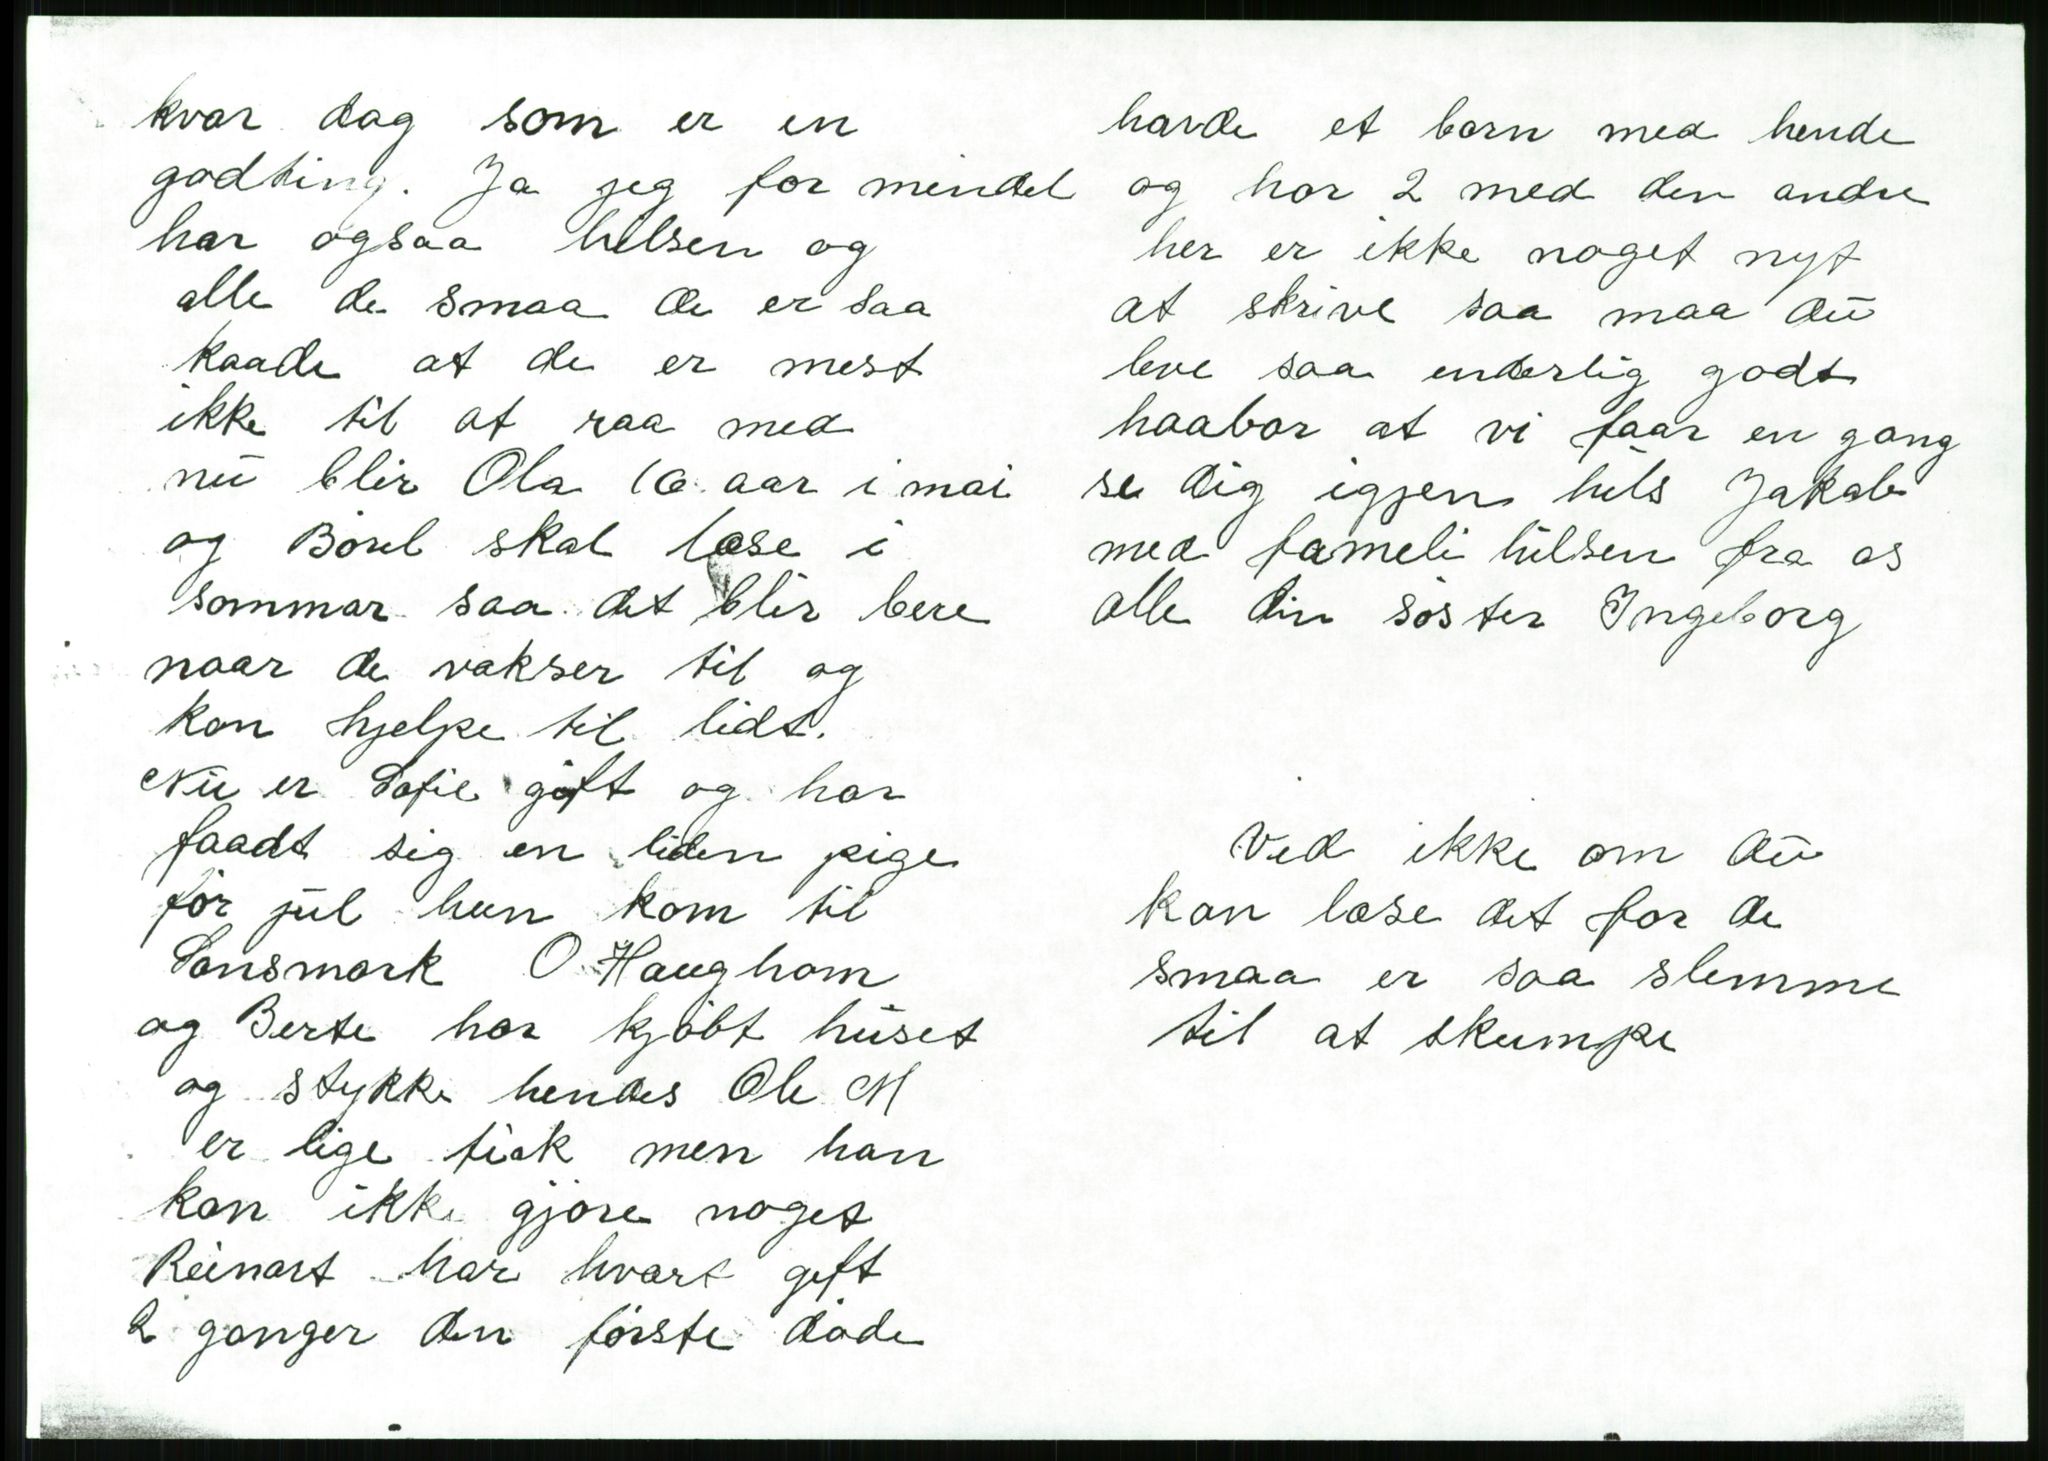 kvar dag som er en
godting. Ja jeg for mindel
har ogsaa helsen og
alle de smaa de er saa
kaade at de er mest
ikke til at raa med
nu blir Ola 10 aar i mai
og Borel skal læse i
sommar saa det blir bere
naar de vakser til og
kan hjelpe til lidt.
Nu er Sofie gift og har
faadt sig en liden pige
før jul hun kom til
Sansmark O Haughom
og Berte har kjøbt huset
og stykke hendes Ole M
er lige frisk men han
kan ikke gjøre noget
Reinart har hvart gift
2 ganger den første døde
havde et barn med hende
og har 2 med den andre
her er ikke noget nyt
at skrive saa maa du
leve saa enderlig godt
haabar at vi faar en gang
se dig igjen hils Jakab
med fameli hilsen fra os
alle din søster Ingeborg
Ved ikke om du
kan læse det for de
smaa er saa slemme
til at skumpe